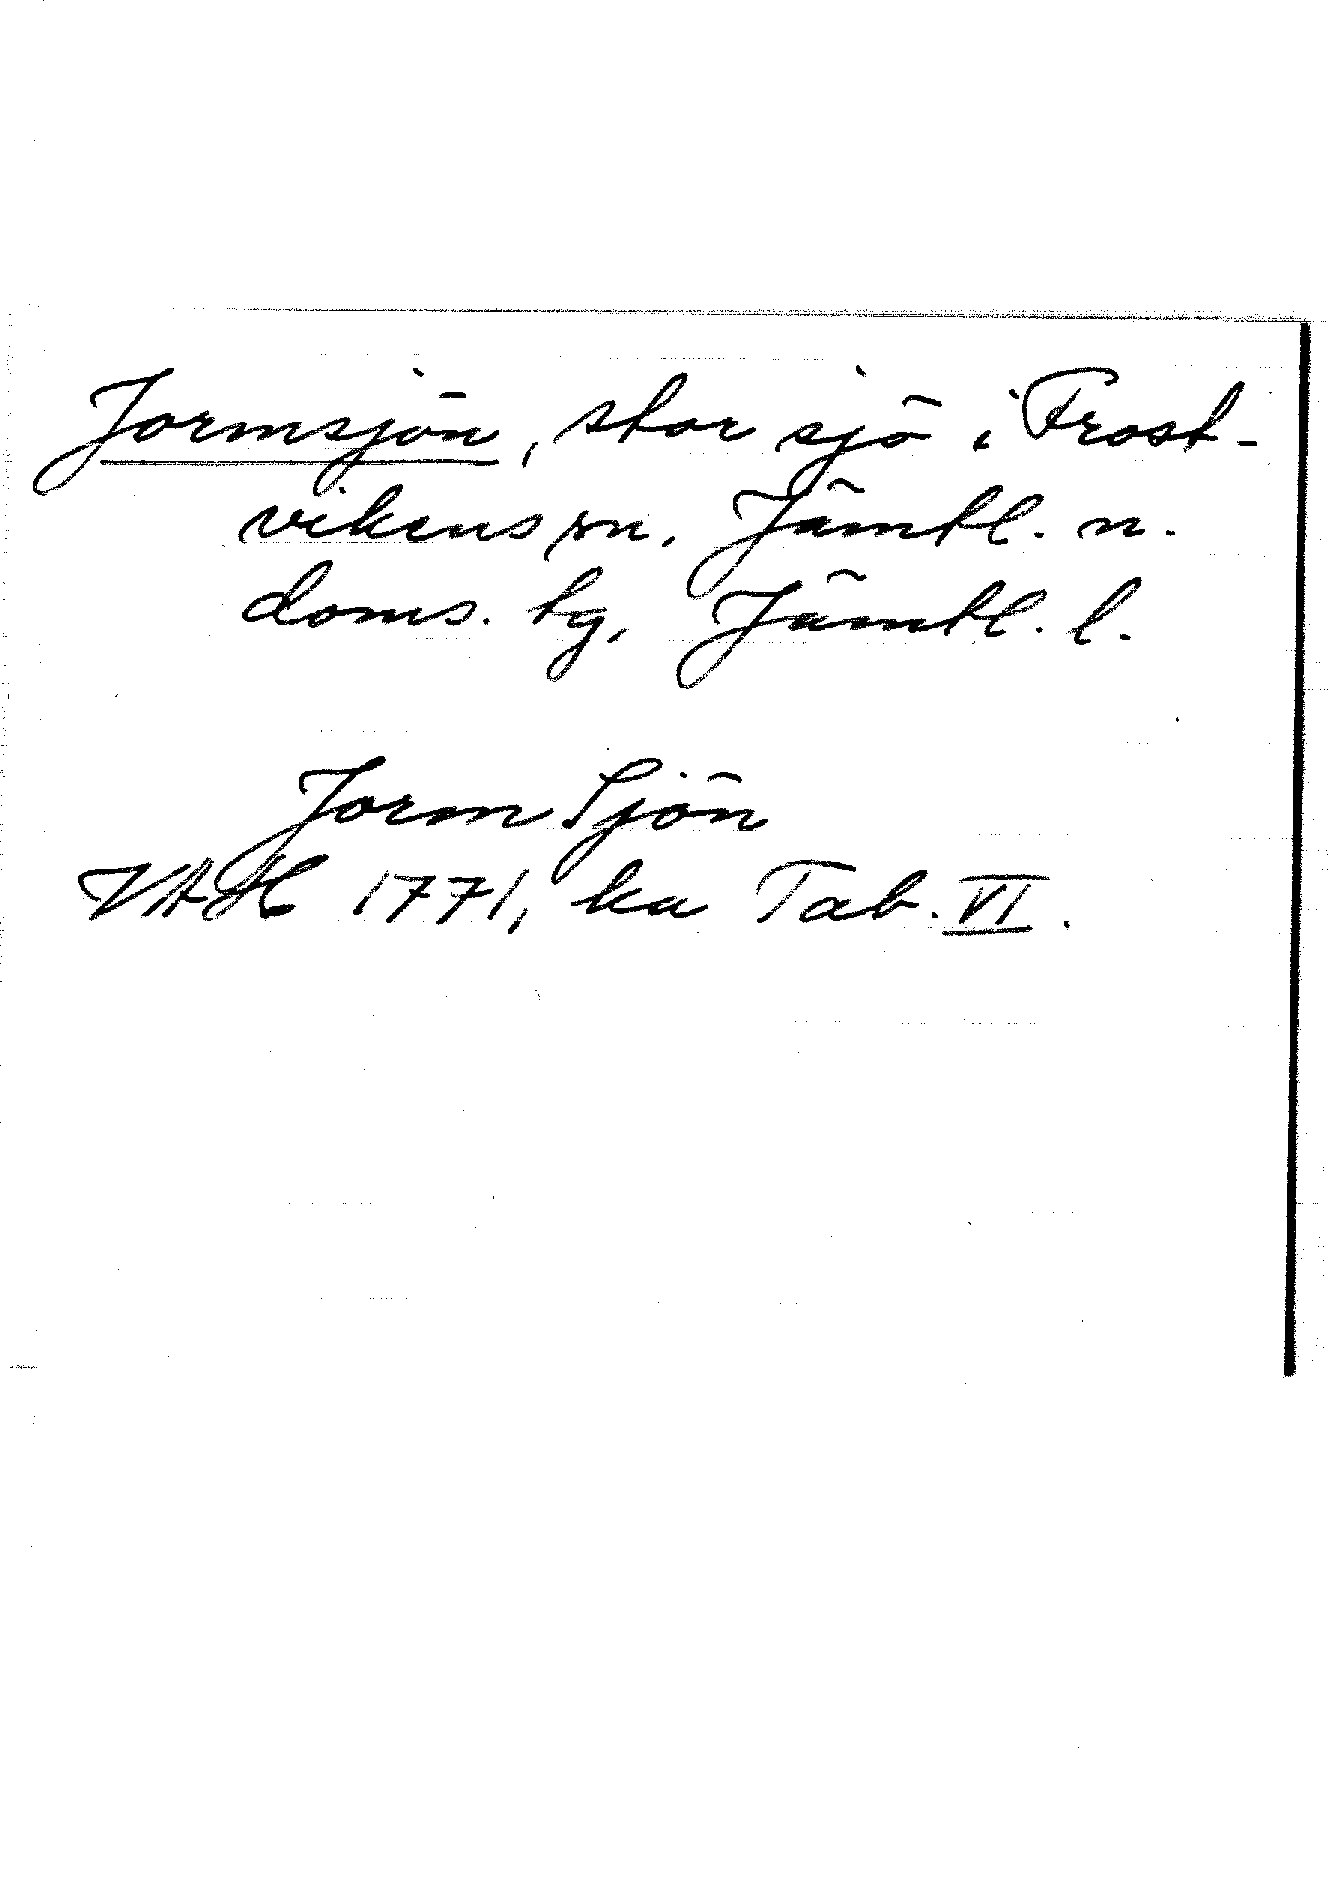 Jormsjön, stor sjö i Frost-
vikens sn, Jämtl. n.
doms. hg, Jämtl. l.
Jorm Sjön
VAH 1771, ka Tab. VI.